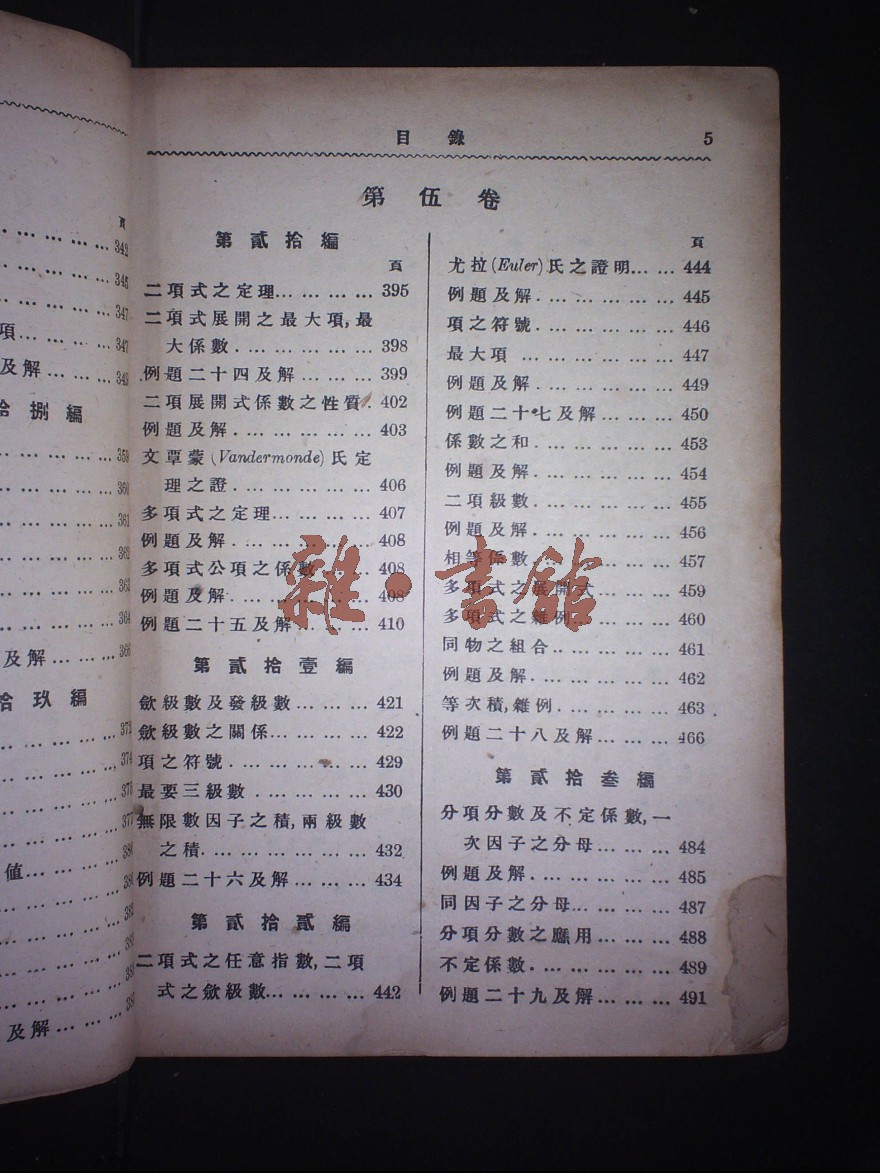 目錄 5
第伍卷
第貳拾編
頁
二項式之定理... ... ... ... 395
二項式展開之最大項,最
大係數. ... ... ... ... ... 398
例題二十四及解... ... ... 399
二項展開式係數之性質. 402
例題及解. ... ... ... ... ... 403
文覃蒙(Vandermonde)氏定
理之證. ... ... ... ... ... 406
多項式之定理... ... ... ... 407
例題及解. ... ... ... ... ... 408
多項式公項之係數... ... 408
例題及解. ... ... ... ... ... 408
例題二十五及解... ... ... 410
第貳拾壹編
歛級數及發級數... ... ... 421
歛級數之關係... ... ... ... 422
項之符號. ... ... ... ... ... 429
最要三級數. ... ... ... ... 430
無限數因子之積,兩級數
之積. ... ... ... ... ... ... 432
例題二十六及解... ... ... 434
第貳拾貳編
二項式之任意指數,二項
式之歛級數... ... ... ... 442
頁
尤拉(Euler)氏之證明... ... 444
例題及解. ... ... ... ... ... 445
項之符號. ... ... ... ... ... 446
最大項 ... ... ... ... ... ... 447
例題及解. ... ... ... ... ... 449
例題二十七及解... ... ... 450
係數之和. ... ... ... ... ... 453
例題及解. ... ... ... ... ... 454
二項級數. ... ... ... ... ... 455
例題及解. ... ... ... ... ... 456
相等係數. ... ... ... ... ... 457
多項式之展開式... ... ... 459
多項式之雜例... ... ... ... 460
同物之組合.. ... ... ... ... 461
例題及解. ... ... ... ... ... 462
等次積,雜例. ... ... ... ... 463
例題二十八及解... ... ... 466
第貳拾叁編
分項分數及不定係數,一
次因子之分母... ... ... 484
例題及解. ... ... ... ... ... 485
同因子之分母... ... ... ... 487
分項分數之應用... ... ... 488
不定係數. ... ... ... ... ... 489
例題二十九及解... ... ... 491
頁
342
345
347
項... ... ... ... 347
及解... ... ...
拾捌編
359
360
361
362
363
364
及解... ... ... 366
拾玖編
372
374
值... ... ... ...
及解... ... ...
雜·書館